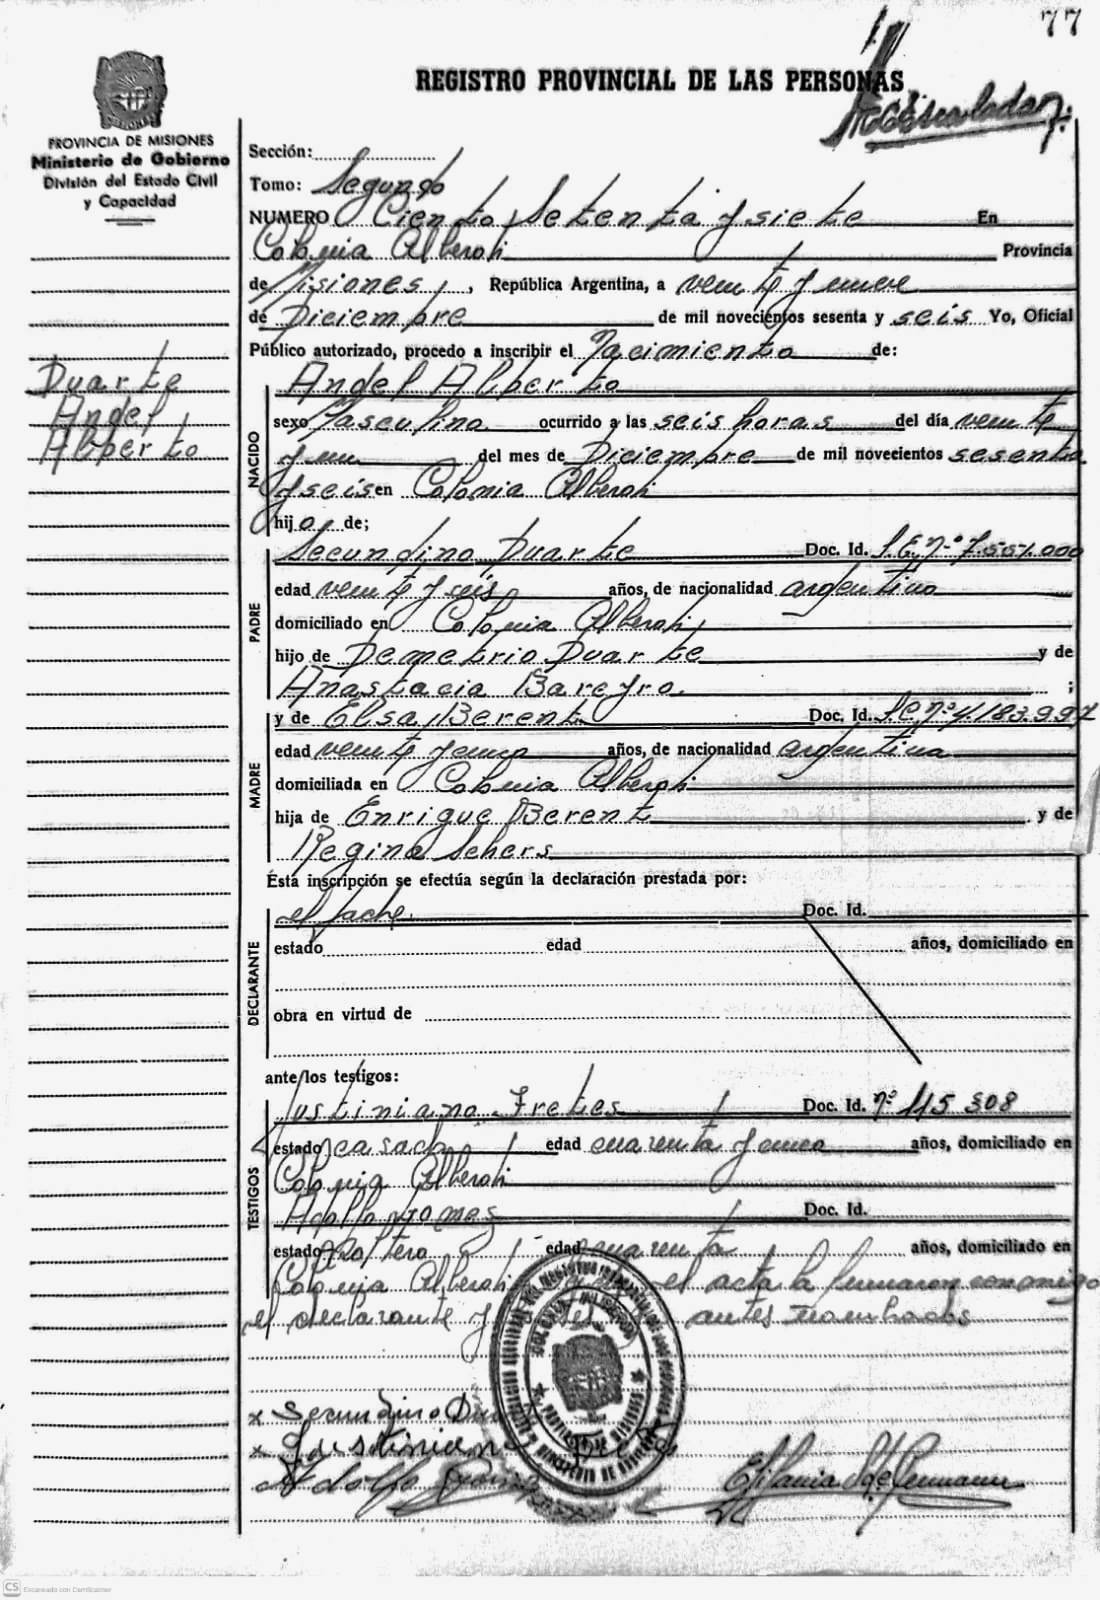 77
REGISTRO PROVINCIAL DE LAS PERSONAS
PROVINCIA DE MISIONES
Ministerio de Gobierno
División del Estado Civil
y Capacidad
Sección:
Tomo: Segundo
NUMERO Ciento Setenta y siete En
Colonia Alberdi Provincia
de Misiones, República Argentina, a veinte y nueve
de Diciembre de mil novecientos sesenta y seis Yo, Oficial
Público autorizado, procedo a inscribir el Nacimiento de:
Duarte
Angel
Alberto
NACIDO
Angel Alberto
sexo Masculino ocurrido a las seis horas del día veinte
y un del mes de Diciembre de mil novecientos sesenta
y seis en Colonia Alberdi
hijo de;
PADRE
Secundino Duarte Doc. Id.
edad veinte y seis años, de nacionalidad argentino
domiciliado en Colonia Alberdi
hijo de Demetrio Duarte y de
Anastacia Bareyro ;
MADRE
y de Elsa Berent Doc. Id.
edad veinte y cinco años, de nacionalidad argentina
domiciliada en Colonia Alberdi
hija de Enrique Berent y de
Regina Sehers
Esta inscripción se efectúa según la declaración prestada por:
DECLARANTE
el Doc. Id.
estado edad años, domiciliado en
obra en virtud de
ante los testigos:
TESTIGOS
Justiniano Fretes Doc. Id. Nº 115 308
estado casado edad cuarenta y cinco años, domiciliado en
Colonia Alberdi
Adolfo Gomez Doc. Id.
estado Soltero edad cuarenta años, domiciliado en
Colonia Alberdi el acta la firmaron conmigo
el declarante y antes nombrados
x Secundino
x Justiniano
Adolfo
PROVINCIA DE MISIONES
CS Escaneado con CamScanner